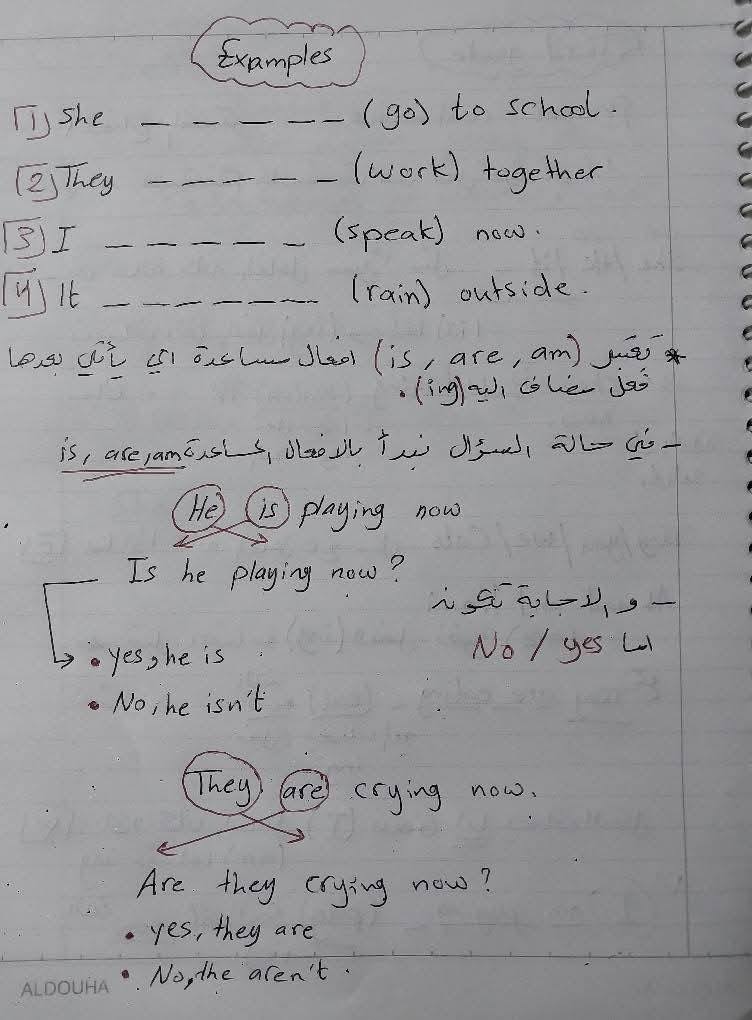 Examples
[1] She _ _ _ _ _ (go) to school.
[2] They _ _ _ _ _ (work) together
[3] I _ _ _ _ _ (speak) now.
[4] It _ _ _ _ _ _ (rain) outside.
* تعتبر (is, are, am) افعال مساعدة اي يأتي بعدها
فعل مضاف اليه (ing).
- في حالة السؤال نبدأ بالافعال المساعدة is, are, am
He is playing now
Is he playing now?
- و الاجابة تكون
اما No / yes
• yes, he is
• No, he isn't
They are crying now.
Are they crying now?
• yes, they are
• No, the aren't.
ALDOUHA